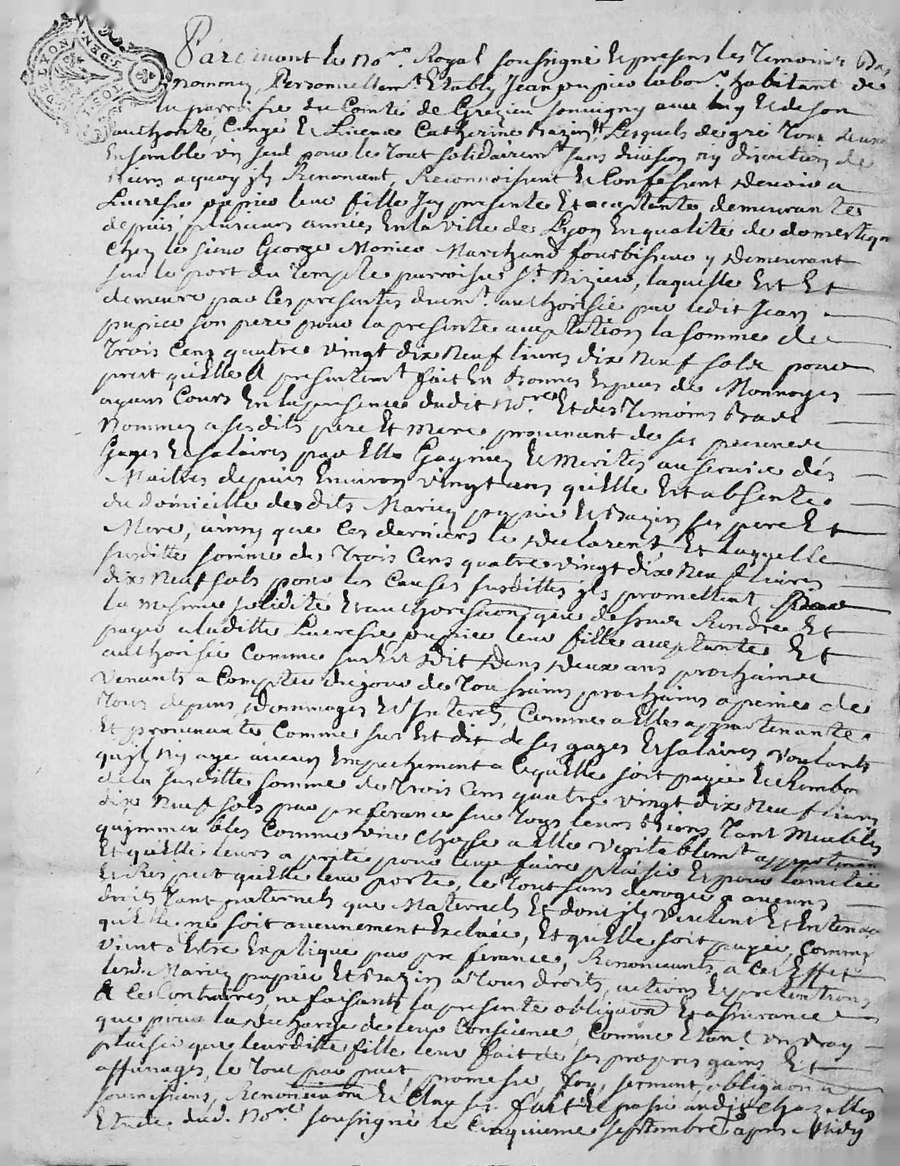 DE LYON
Pardevant le No.re Royal soussigné et presens les Temoins bas
nommez, Personnellem.t Estably Jean pupier labo.r habitant de
la parroisse du Comté de Grezieu souvigny avec luy et de son
authorité, Congé et Licence Catherine Bazin, Lesquels de gré Tous deux
Ensemble un seul pour le tout solidairem.t sans division ny discution de
biens a quoy ils Renoncent, Reconnoissent et Confessent devoir a
Lucresse pupier leur fille Icy presente Et aceptante demeurante
depuis plusieurs années En la ville de Lyon En qualité de domestique
Chez le sieur George Monier Marchand fourbisseur y demeurant
sur le port du Temple parroisse S.t Nizier, laquelle Est Et
demeure par ces presentes duem.t authorisée par ledit Jean
pupier son pere pour la presente aceptation la somme de
Trois Cens quatre vingt dix Neuf livres dix Neuf sols pour
prest qu'elle A presentem.t fait En bonnes Especes de Monnoyes
ayans Cours En la presence dudit No.re Et des Temoins bas
Nommez a sesdits pere Et Mere provenant de ses
Gages Et salaires par Elle Gagnez Et Merites au service des
Maitres depuis Environ vingt ans qu'elle Est absente
du domicille desdits Mariez pupier Et Bazin ses pere Et
Mere, ainsy que ces derniers le declarent, Et laquelle
susditte somme de Trois Cens quatre vingt dix Neuf livres
dix Neuf sols pour les Causes susdittes ils promettent sous
la mesme solidité Et authorisation que dessus Rendre Et
payer a laditte Lucresse pupier leur fille aceptante Et
authorisée Comme sus Est dit dans deux ans prochains
venants a Compter du jour de Toussains prochains a peine de
Tous depens, dommages Et Interets, Comme a Elle appartenante
Et provenante Comme sus Est dit de ses gages Et salaires voulants
qu'il N'y aye aucun Empechement a ce qu'elle soit payée Et
de la susditte somme de Trois Cens quatre vingt dix Neuf livres
dix Neuf sols par preferance sur Tous leurs biens Tant Meubles
qu'immeubles Comme une Chosse a Elle veritablem.t appartenan
Et qu'elle leurs a prété pour leur faire plaisir Et pour l'amitié
Et Respect qu'elle leur porte, le tout sans deroger a aucuns
droits Tant paternels que Maternels Et dont ils veulent Et Entende
qu'elle ne soit aucunement Excluée, Et qu'elle soit payée, Comme
vient d'Estre Expliqué par preferance, Renonceants a Cet Effet
lesd. Mariez pupier Et Bazin a Tous droits, actions Et pretentions
A ce Contraires ne faisants la presente obligaon Et assurance
que pour la decharge de leur Conscience, Comme Etant un vray
plaisir que leurditte fille leur fait de ses propres gains Et
le Tout par pact, promesse, foy, serment, obligaon
soumissions, Renonciaon Et Clauses. fait Et passé audit Chazelles
Etude dud. No.re soussigné le Cinquieme septembre apres Midy